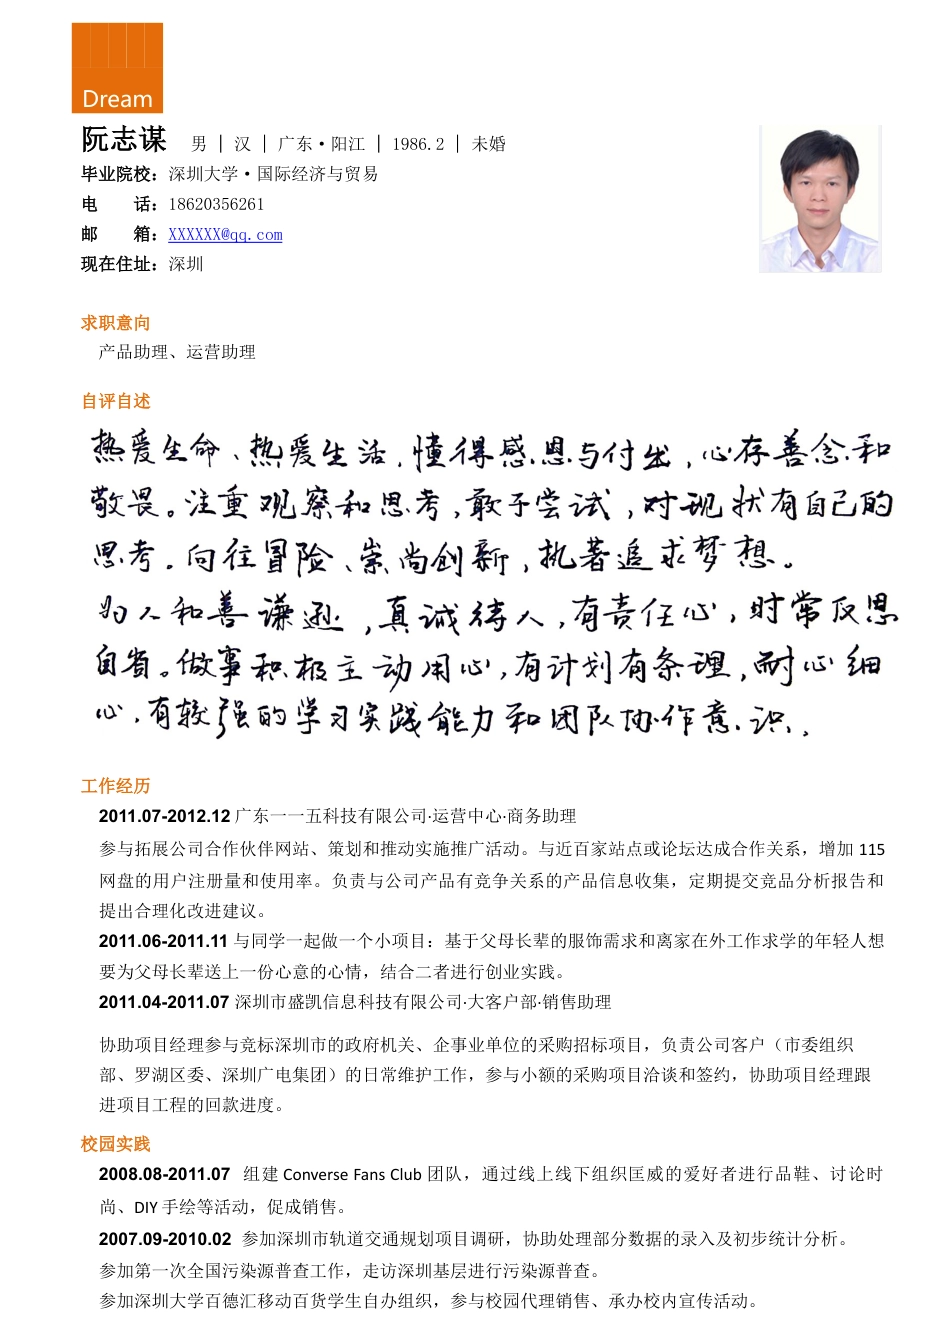 Dream
阮志谋 男 │ 汉 │ 广东·阳江 │ 1986.2 │ 未婚
毕业院校：深圳大学·国际经济与贸易
电　　话：18620356261
邮　　箱：XXXXXX@qq.com
现在住址：深圳
求职意向
产品助理、运营助理
自评自述
热爱生命、热爱生活，懂得感恩与付出，心存善念和
敬畏。注重观察和思考，敢于尝试，对现状有自己的
思考。向往冒险、崇尚创新，执著追求梦想。
为人和善谦逊，真诚待人，有责任心，时常反思
自省。做事积极主动用心，有计划有条理，耐心细
心，有较强的学习实践能力和团队协作意识。
工作经历
2011.07-2012.12 广东一一五科技有限公司·运营中心·商务助理
参与拓展公司合作伙伴网站、策划和推动实施推广活动。与近百家站点或论坛达成合作关系，增加 115
网盘的用户注册量和使用率。负责与公司产品有竞争关系的产品信息收集，定期提交竞品分析报告和
提出合理化改进建议。
2011.06-2011.11 与同学一起做一个小项目：基于父母长辈的服饰需求和离家在外工作求学的年轻人想
要为父母长辈送上一份心意的心情，结合二者进行创业实践。
2011.04-2011.07 深圳市盛凯信息科技有限公司·大客户部·销售助理
协助项目经理参与竞标深圳市的政府机关、企事业单位的采购招标项目，负责公司客户（市委组织
部、罗湖区委、深圳广电集团）的日常维护工作，参与小额的采购项目洽谈和签约，协助项目经理跟
进项目工程的回款进度。
校园实践
2008.08-2011.07 组建 Converse Fans Club 团队，通过线上线下组织匡威的爱好者进行品鞋、讨论时
尚、DIY 手绘等活动，促成销售。
2007.09-2010.02 参加深圳市轨道交通规划项目调研，协助处理部分数据的录入及初步统计分析。
参加第一次全国污染源普查工作，走访深圳基层进行污染源普查。
参加深圳大学百德汇移动百货学生自办组织，参与校园代理销售、承办校内宣传活动。